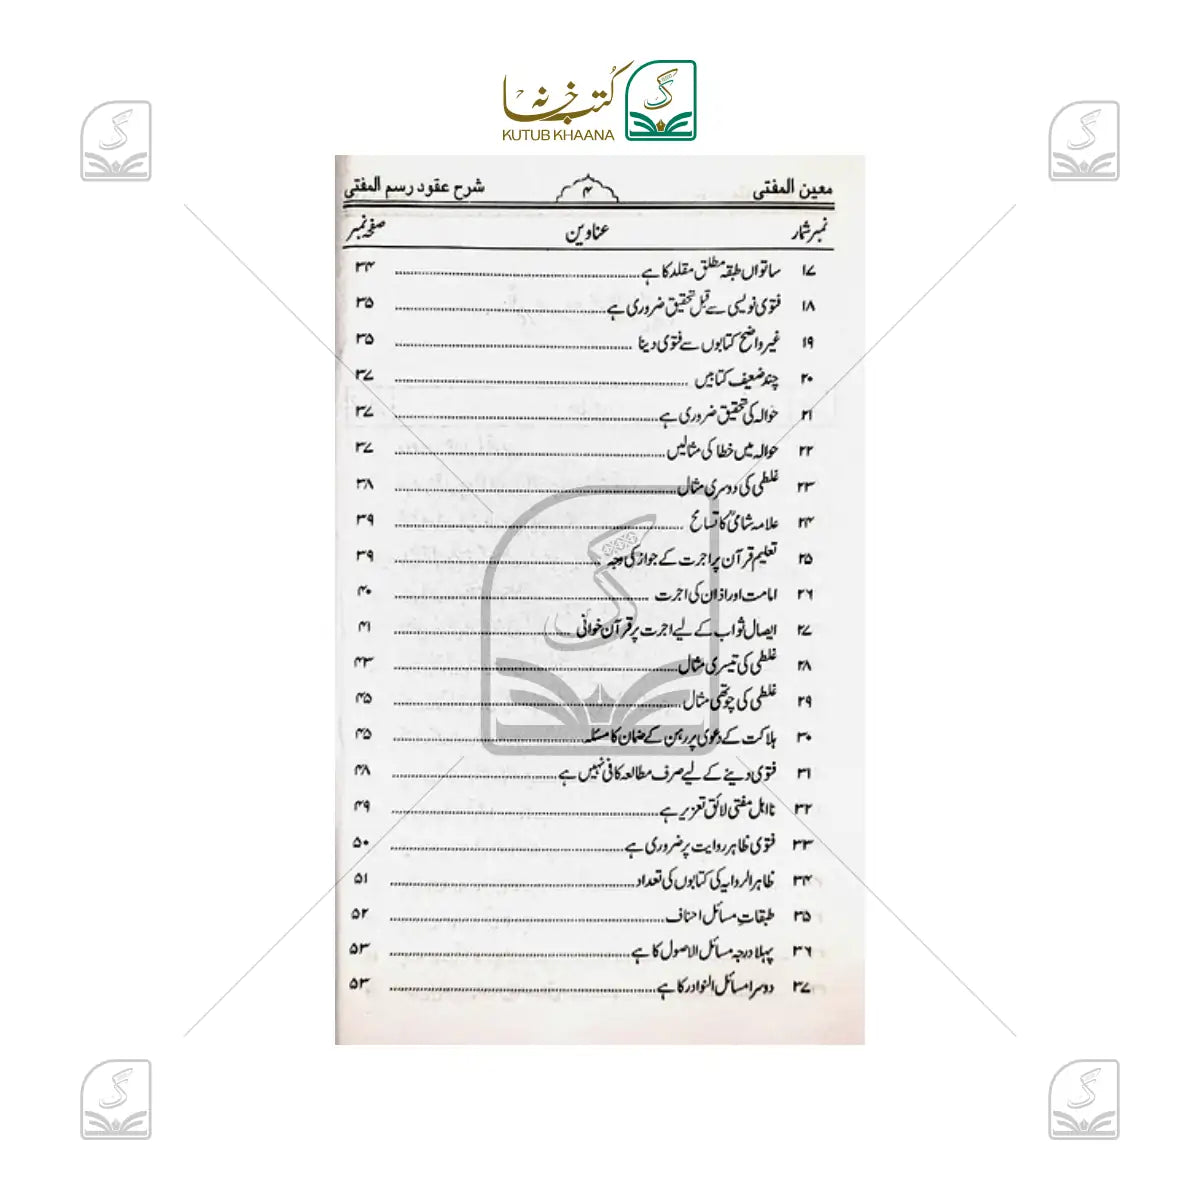 کتب خانہ
KUTUB KHAANA
معین المفتی ۴ شرح عقود رسم المفتی
نمبر شمار عناوین صفحہ نمبر
۱۷ ساتواں طبقہ مطلق مقلد کا ہے ۳۴
۱۸ فتوی نویسی سے قبل تحقیق ضروری ہے ۳۵
۱۹ غیر واضح کتابوں سے فتوی دینا ۳۵
۲۰ چند ضعیف کتابیں ۳۷
۲۱ حوالہ کی تحقیق ضروری ہے ۳۷
۲۲ حوالہ میں خطا کی مثالیں ۳۷
۲۳ غلطی کی دوسری مثال ۳۸
۲۴ علامہ شامیؒ کا تسامح ۳۹
۲۵ تعلیم قرآن پر اجرت کے جواز کی وجہ ۳۹
۲۶ امامت اور اذان کی اجرت ۴۰
۲۷ ایصال ثواب کے لیے اجرت پر قرآن خوانی ۴۱
۲۸ غلطی کی تیسری مثال ۴۳
۲۹ غلطی کی چوتھی مثال ۴۵
۳۰ ہلاکت کے دعوی پر رہن کے ضمان کا مسئلہ ۴۵
۳۱ فتوی دینے کے لیے صرف مطالعہ کافی نہیں ہے ۴۸
۳۲ نااہل مفتی لائق تعزیر ہے ۴۹
۳۳ فتوی ظاہر روایت پر ضروری ہے ۵۰
۳۴ ظاہر الروایہ کی کتابوں کی تعداد ۵۱
۳۵ طبقاتِ مسائل احناف ۵۲
۳۶ پہلا درجہ مسائل الاصول کا ہے ۵۳
۳۷ دوسرا مسائل النوادر کا ہے ۵۳